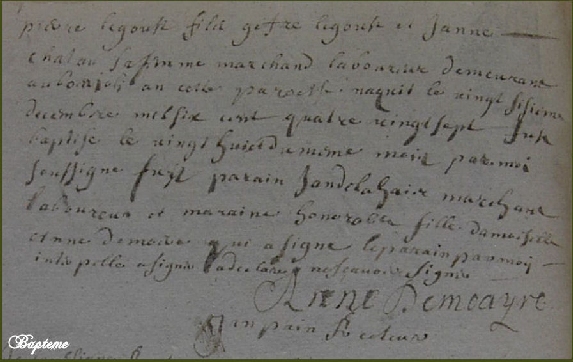 pierre legoust fils gefre legoust et Janne
chatau sa famme marchand laboureur demeurant
en cette paroisse naquit le vingt sisieme
decembre mil six cent quatre vingt sept fut
baptise le vingt huict du meme mois par moi
soussigne fut parain Jan delahaie marchant
laboureur et maraine honorable fille damoiselle
Anne qui a signe le parain par moy
interpelle a signe a declare ne scavoir signe
Anne Demoayre
Recteur
Bapteme